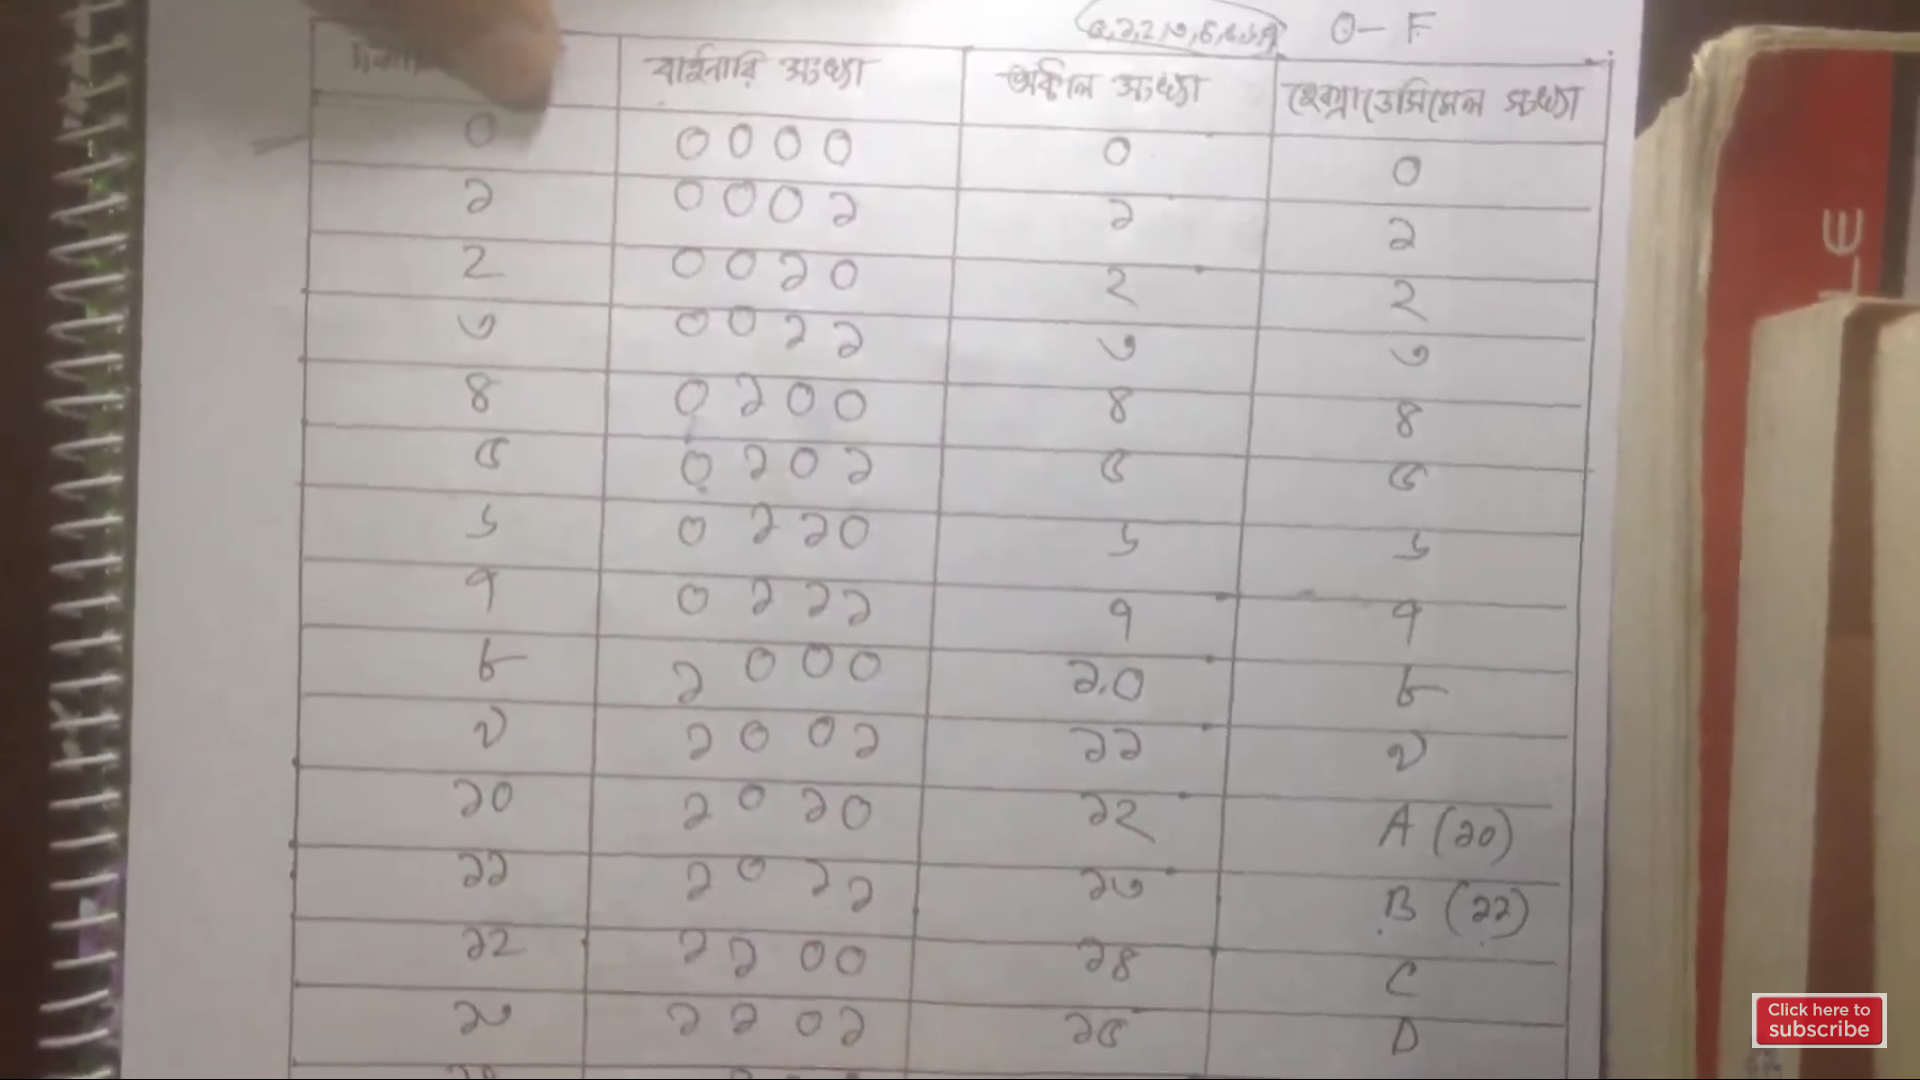 ০,১,২,৩,৪,৫,৬,৭ 0 - F
বাইনারি সংখ্যা অক্টাল সংখ্যা হেক্সাডেসিমেল সংখ্যা
০ ০০০০ ০ ০
১ ০০০১ ১ ১
২ ০০১০ ২ ২
৩ ০০১১ ৩ ৩
৪ ০১০০ ৪ ৪
৫ ০১০১ ৫ ৫
৬ ০১১০ ৬ ৬
৭ ০১১১ ৭ ৭
৮ ১০০০ ১০ ৮
৯ ১০০১ ১১ ৯
১০ ১০১০ ১২ A (১০)
১১ ১০১১ ১৩ B (১১)
১২ ১১০০ ১৪ C
১৩ ১১০১ ১৫ D
Click here to
subscribe